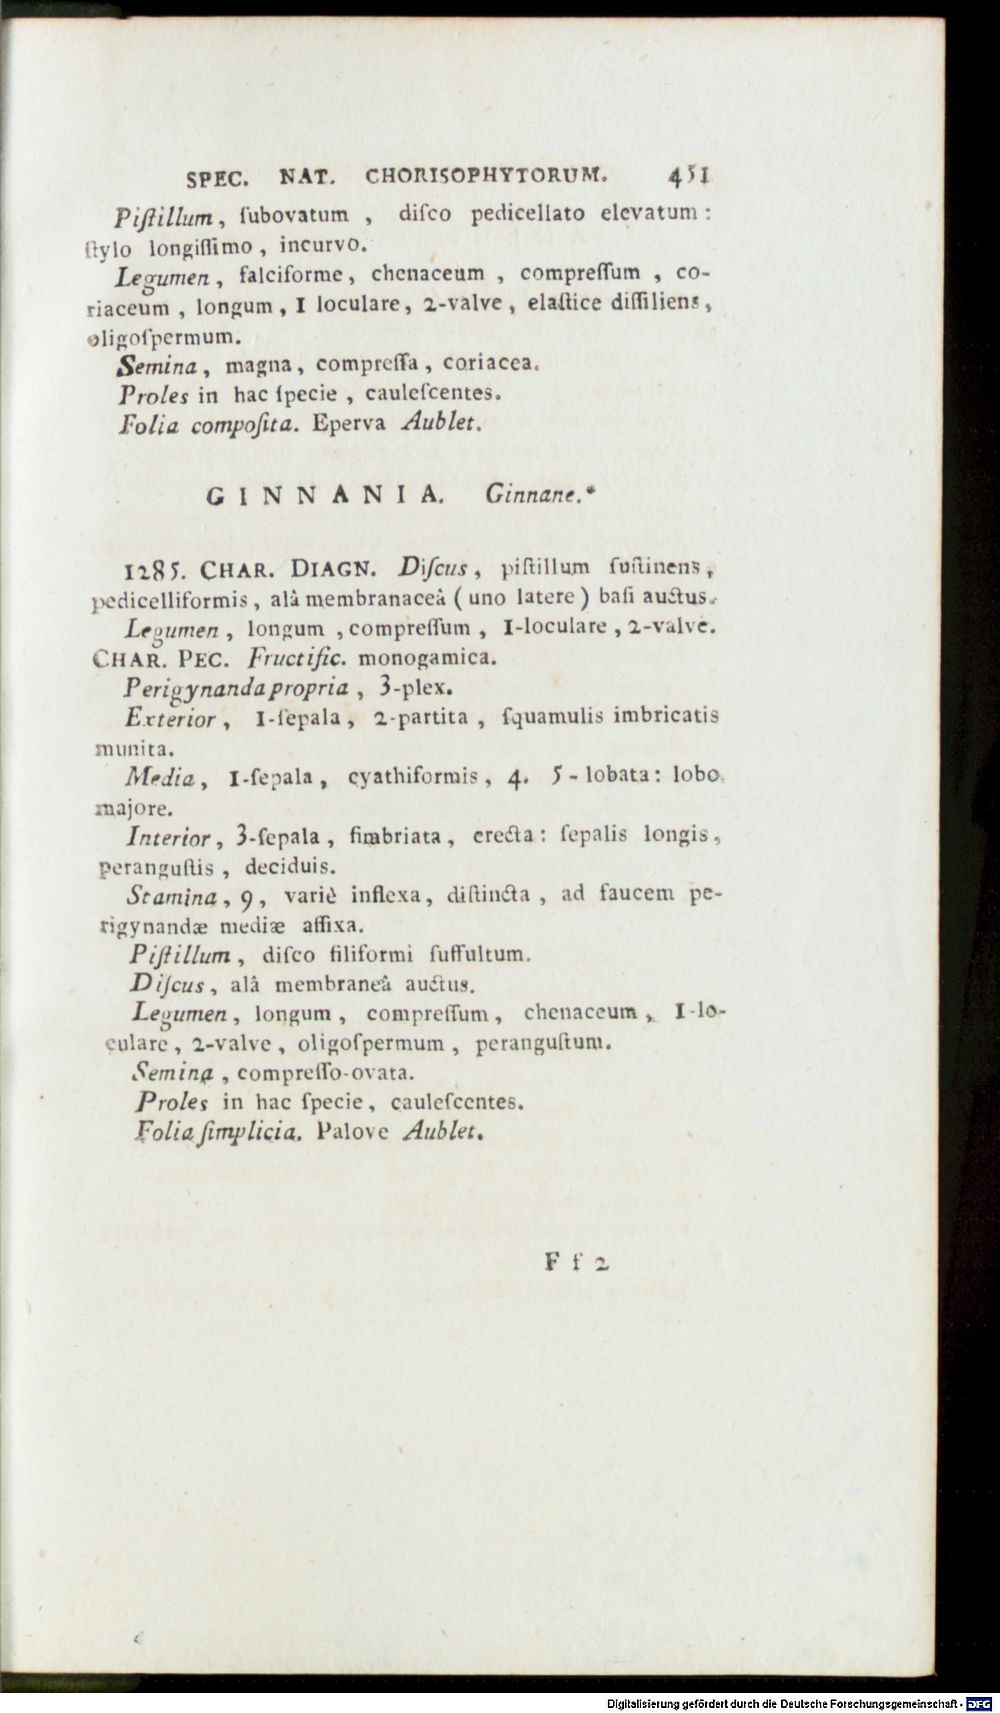 SPEC. NAT. CHORISOPHYTORUM. 451
Piſtillum, ſubovatum , diſco pedicellato elevatum :
ſtylo longiſſimo, incurvo.
Legumen, falciforme, chenaceum , compreſſum , co-
riaceum , longum, 1 loculare, 2-valve, elaſtice diſſiliens,
oligoſpermum.
Semina, magna, compreſſa, coriacea.
Proles in hac ſpecie , cauleſcentes.
Folia compoſita. Eperva Aublet.
GINNANIA. Ginnane.*
1285. CHAR. DIAGN. Diſcus, piſtillum ſuſtinens,
pedicelliformis, alâ membranaceâ ( uno latere ) baſi auctus.
Legumen, longum , compreſſum, 1-loculare, 2-valve.
CHAR. PEC. Fructific. monogamica.
Perigynanda propria, 3-plex.
Exterior, 1-ſepala, 2-partita, ſquamulis imbricatis
munita.
Media, 1-ſepala, cyathiformis, 4. 5-lobata: lobo
majore.
Interior, 3-ſepala, fimbriata, erecta: ſepalis longis,
peranguſtis, deciduis.
Stamina, 9, variè inflexa, diſtincta, ad faucem pe-
rigynandæ mediæ affixa.
Piſtillum, diſco filiformi ſuffultum.
Diſcus, alâ membraneâ auctus.
Legumen, longum, compreſſum, chenaceum, 1-lo-
culare, 2-valve, oligoſpermum, peranguſtum.
Semina, compreſſo-ovata.
Proles in hac ſpecie, cauleſcentes.
Folia ſimplicia. Palove Aublet.
F f 2
Digitalisierung gefördert durch die Deutsche Forschungsgemeinschaft - DFG